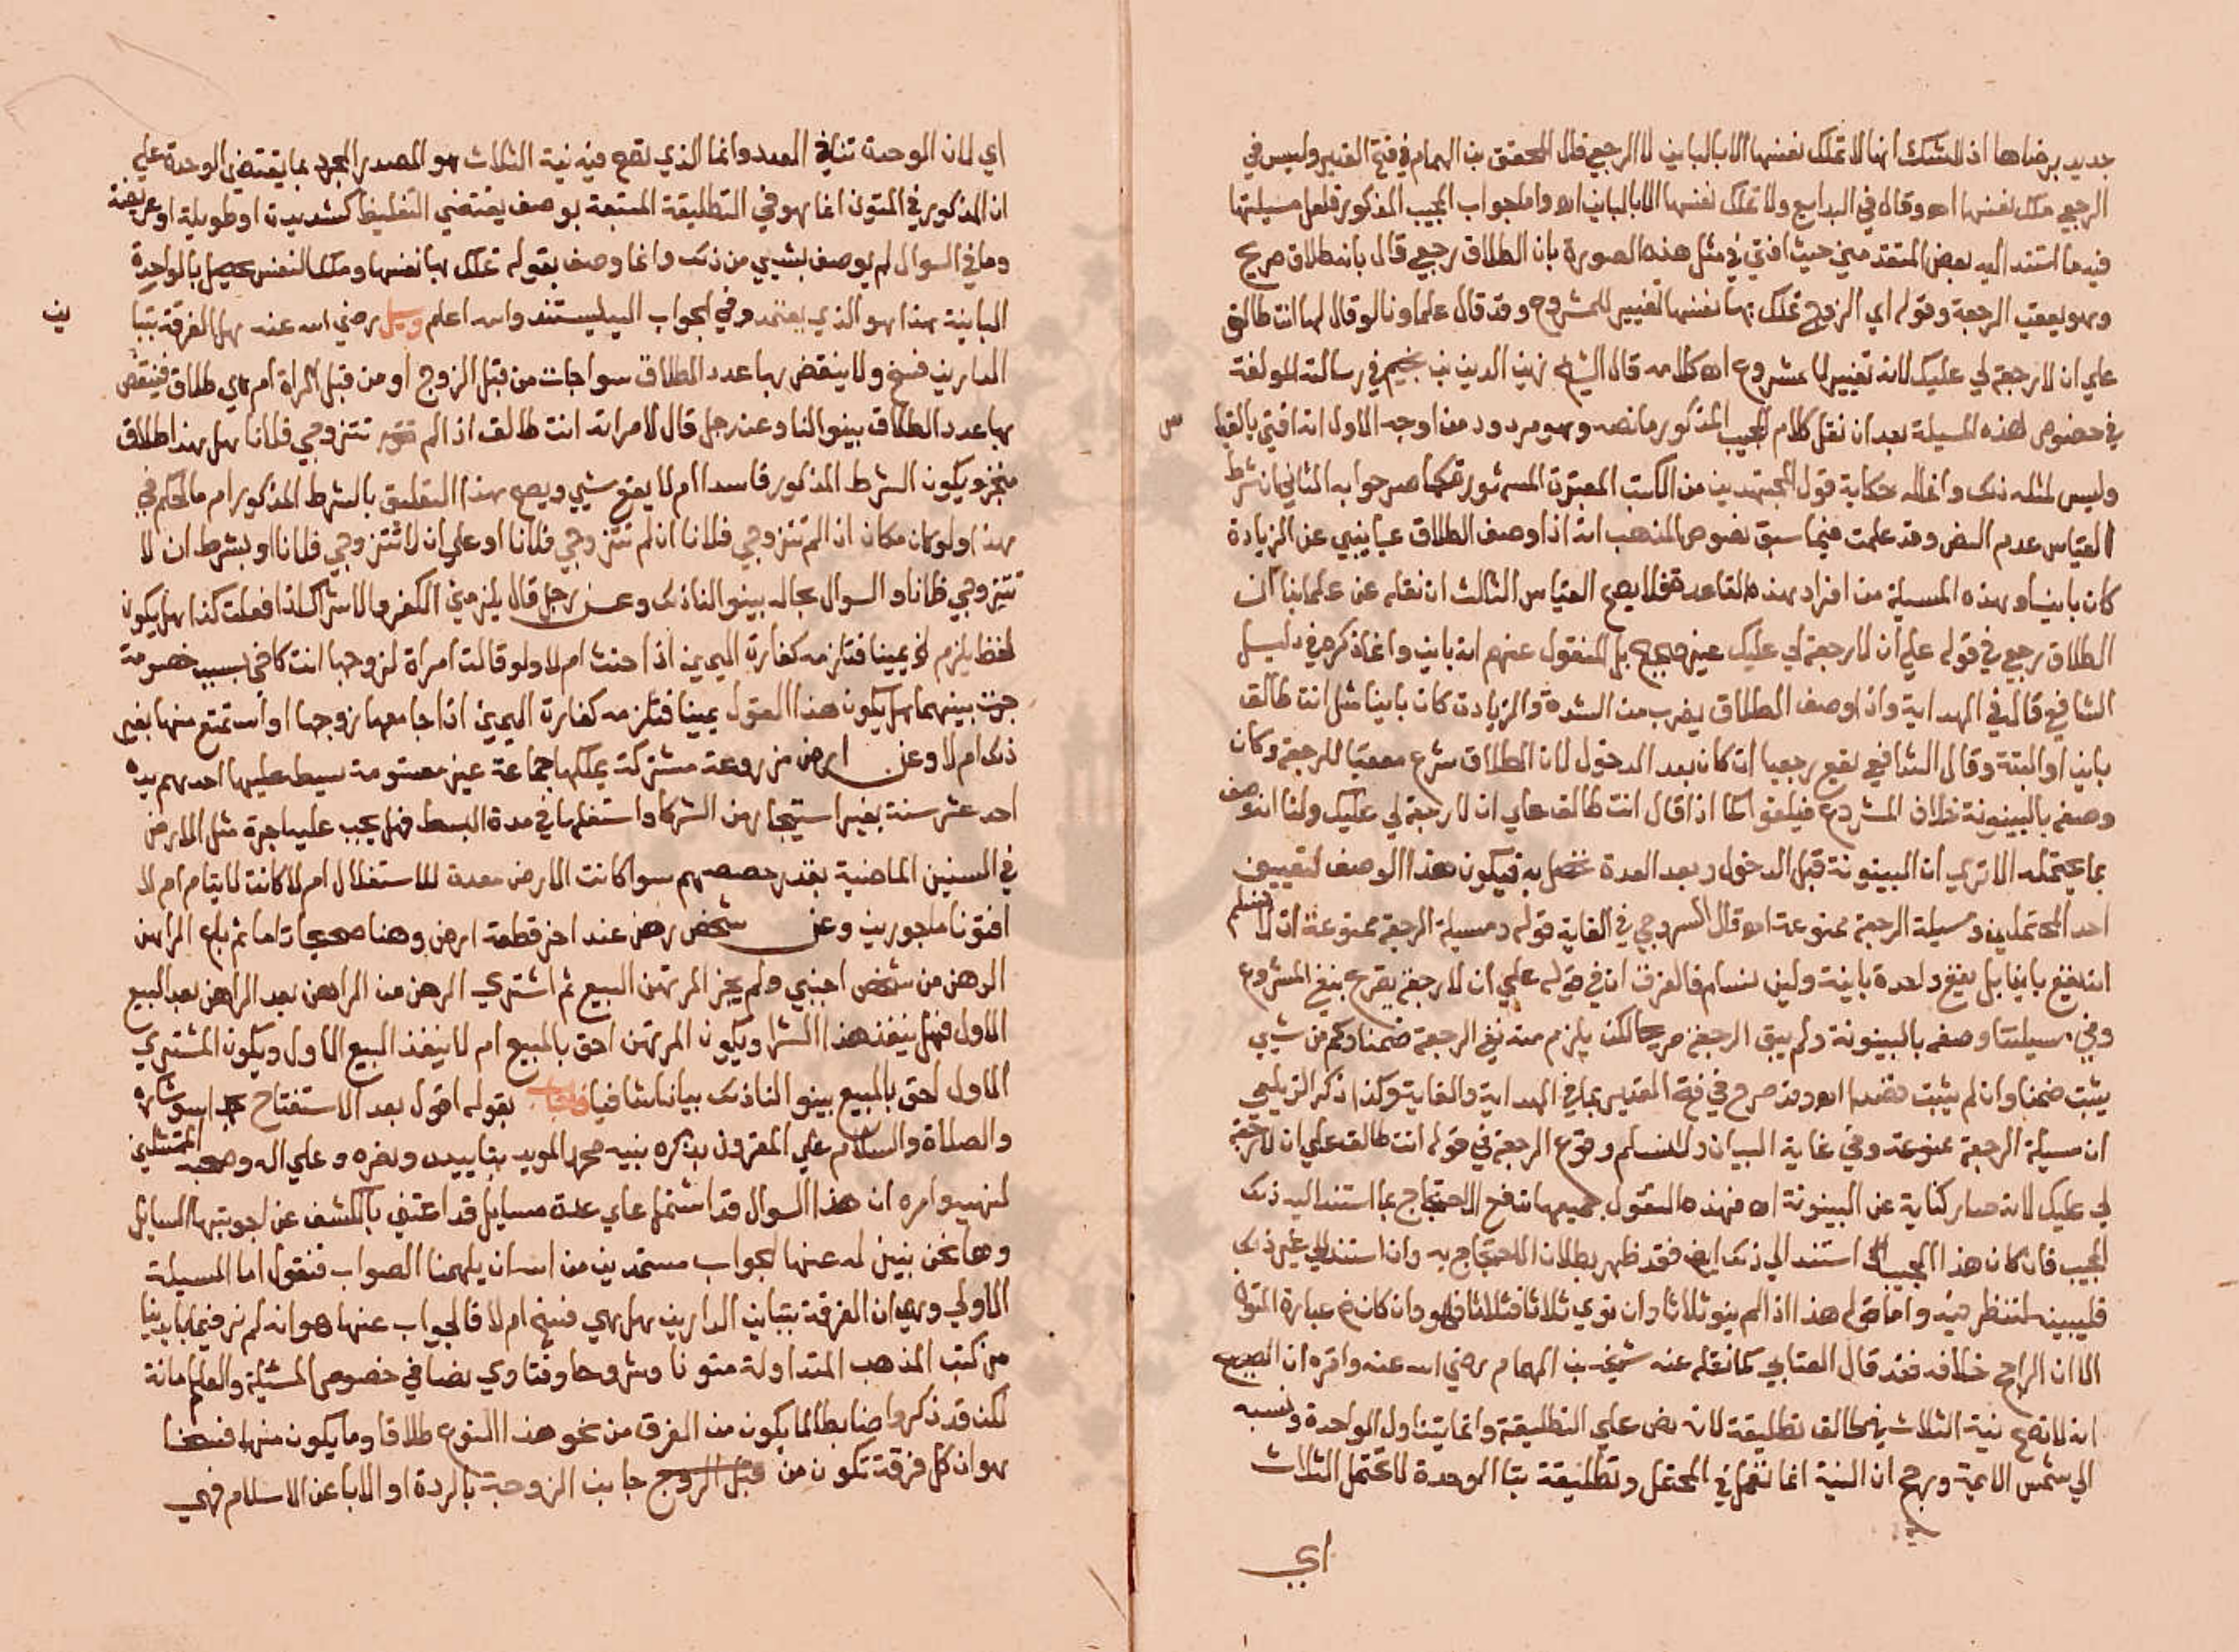 جديد برضاها اذ لا شك انها لا تملك نفسها الا بالباين لا الرجعي قال المحقق بن الهمام في فتح القدير وليس في
الرجعي ملك نفسها اه وقال في البدايع ولا تملك نفسها الا بالباين اه واما جواب المجيب المذكور فلعل مسيلتها
فيه ما استند اليه بعض المتقدمين حيث افتي في مثل هذه الصورة بان الطلاق رجعي قال بانه طلاق صريح
وهو يعقب الرجعة وقوله اي الزوج تملك بها نفسها تغيير للمشروع وقد قال علماونا لو قال لها انت طالق
علي ان لا رجعة لي عليك لانه تغيير لما شرع اه كلامه قال الشيخ زين الدين بن نجيم في رسالته المولفة
في خصوص هذه المسيلة بعد ان نقل كلام المجيب المذكور ما نصه وهو مردود من اوجه الاول انه افتي بالقياس
وليس لمثله ذلك وانما له حكاية قول المجتهدين من الكتب المعتبرة المشهورة كما صرحوا به الثاني ان شرط
القياس عدم النص وقد علمت فيما سبق نصوص المذهب انه اذا وصف الطلاق بما ينبي عن الزيادة
كان باينا وهذه المسيلة من افراد هذه القاعدة فلا يصح القياس الثالث ان نقله عن علماينا ان
الطلاق رجعي في قوله علي ان لا رجعة لي عليك غير صحيح بل المنقول عنهم انه باين وانما ذكروه في دليل
الشافعي قال في الهداية واذا وصف الطلاق بضرب من الشدة والزيادة كان باينا مثل انت طالق
باين او البتة وقال الشافعي يقع رجعيا ان كان بعد الدخول لان الطلاق شرع معقبا للرجعة وكان
وصفه بالبينونة خلاف المشروع فيلغوا كما اذا قال انت طالق علي ان لا رجعة لي عليك ولنا انه وصفه
بما يحتمله الا تري ان البينونة قبل الدخول وبعد العدة تحصل به فيكون هذا الوصف لتعيين
احد المحتملين ومسيلة الرجعة ممنوعة اه وقال السروجي في الغاية قوله ومسيلة الرجعة ممنوعة اي لا نسلم
انه يقع باينا بل يقع واحدة باينة ولين نسلم فالفرق ان في قوله علي ان لا رجعة يصرح بنفي المشروع
وفي مسيلتنا وصفه بالبينونة ولم ينف الرجعة صريحا لكن يلزم منه نفي الرجعة ضمنا وكم من شيي
يثبت ضمنا وان لم يثبت قصدا اه وقد صرح في فتح القدير بما في الهداية والغاية وكذا ذكر الزيلعي
ان مسيلة الرجعة ممنوعة وفي غاية البيان ولا نسلم وقوع الرجعة في قوله انت طالق علي ان لا رجعة
لي عليك لانه صار كناية عن البينونة اه فهذه النقول جميعها تدفع الاحتجاج بما استند اليه ذلك
المجيب فان كان هذا المجيب استند الي ذلك ايضا فقد ظهر بطلان الاحتجاج به وان استند الي غير ذلك
فليبينه لننظر فيه واما قوله هذا اذا لم ينو ثلاثا وان نوي ثلاثا فثلاثا فهو وان كان في عبارة المتون
الا ان الراجح خلافه فقد قال العتابي كما نقله عنه شيخه بن الهمام رضي الله عنه واقره ان الصحيح
انه لا تصح نية الثلاث في طالق تطليقة لانه نص علي التطليقة وانها تتناول الواحدة ونسبه
الي شمس الايمة ورجح ان النية انما تعمل في المحتمل وتطليقة بتا الوحدة لا تحتمل الثلاث
اي
اي لان الوحدة تنافي العدد وانما الذي تصح فيه نية الثلاث هو المصدر المجرد بما يقتضي الوحدة علي
ان المذكور في المتون انما هو في التطليقة المتبعة بوصف يقتضي التغليظ كشديدة او طويلة او عريضة
وما في السوال لم يوصف بشيي من ذلك وانما وصف بقوله تملك بها نفسها وملك النفس يحصل بالواحدة
الباينة هذا هو الذي يعتمد وفي الجواب اليه ليستند والله اعلم وسيل رضي الله عنه هل الفرقة بتبا
ين
الدارين فسخ ولا ينقض بها عدد الطلاق سوا جات من قبل الزوج او من قبل المراة ام هي طلاق فينقص
بها عدد الطلاق بينوا لنا وعن رجل قال لامراته انت طالق اذا لم تتزوجي فلانا هل هذا طلاق
منجز ويكون الشرط المذكور فاسدا ام لا يقع شيي ويصح هذا التعليق بالشرط المذكور ام ما الحكم في
هذا ولو كان مكان اذا لم تتزوجي فلانا ان لم تتزوجي فلانا او علي ان لا تتزوجي فلانا او بشرط ان لا
تتزوجي فلانا والسوال بحاله بينوا لنا ذلك وعن رجل قال يلزمني الكفر والاشراك اذا فعلت كذا هل يكون
لفظ يلزم يمينا فتلزمه كفارة اليمين اذا حنث ام لا ولو قالت امراة لزوجها انت كاخي بسبب خصومة
جرت بينهما هل يكون هذا القول يمينا فتلزمه كفارة اليمين اذا جامعها زوجها او استمتع منها بغير
ذلك ام لا وعن ارض مزروعة مشتركة يملكها جماعة غير مقسومة بسيط عليها احدهم يده
احد عشر سنة بغير استيجار من الشركا واستغلها في مدة البسط فهل يجب عليه اجرة مثل الارض
في السنين الماضية بقدر حصصهم سوا كانت الارض معدة للاستغلال ام لا كانت لايتام ام لا
افتونا ماجورين وعن شخص رهن عند اخر قطعة ارض وهنا صحيحا تاما ثم باع الراهن
الرهن من شخص اجنبي ولم يجز المرتهن البيع ثم اشتري الرهن من الراهن بعد الراهن بعد البيع
الاول فهل ينفذ هذا الشرا ويكون المرتهن احق بالمبيع ام لا ينفذ البيع الاول ويكون المشتري
الاول احق بالمبيع بينوا لنا ذلك بيانا شافيا فاجاب بقوله اقول بعد الاستفتاح
والصلاة والسلام علي المقرون بذكره نبيه محمد المويد بتاييده ونصره وعلي اله وصحبه الممتثلين
لنهيه وامره ان هذا السوال قد اشتمل علي عدة مسايل قد اعتني بالكشف عن اجوبتها السايل
وها نحن نبين له عنها الجواب مستمدين من الله ان يلهمنا الصواب فنقول اما المسيلة
الاولي وهي ان الفرقة بتباين الدارين هل هي فسخ ام لا فالجواب عنها هو انه لم نر فيما بايدينا
من كتب المذهب المتداولة متونا وشروحا وفتاوي نصا في خصوص المسيلة والعلم امانة
لكن قد ذكروا ضابطا لما يكون من الفرق من نحو هذا النوع طلاقا وما يكون منها فسخا
هو ان كل فرقة تكون من قبل الزوج جانب الزوجة بالردة او الابا عن الاسلام فهي